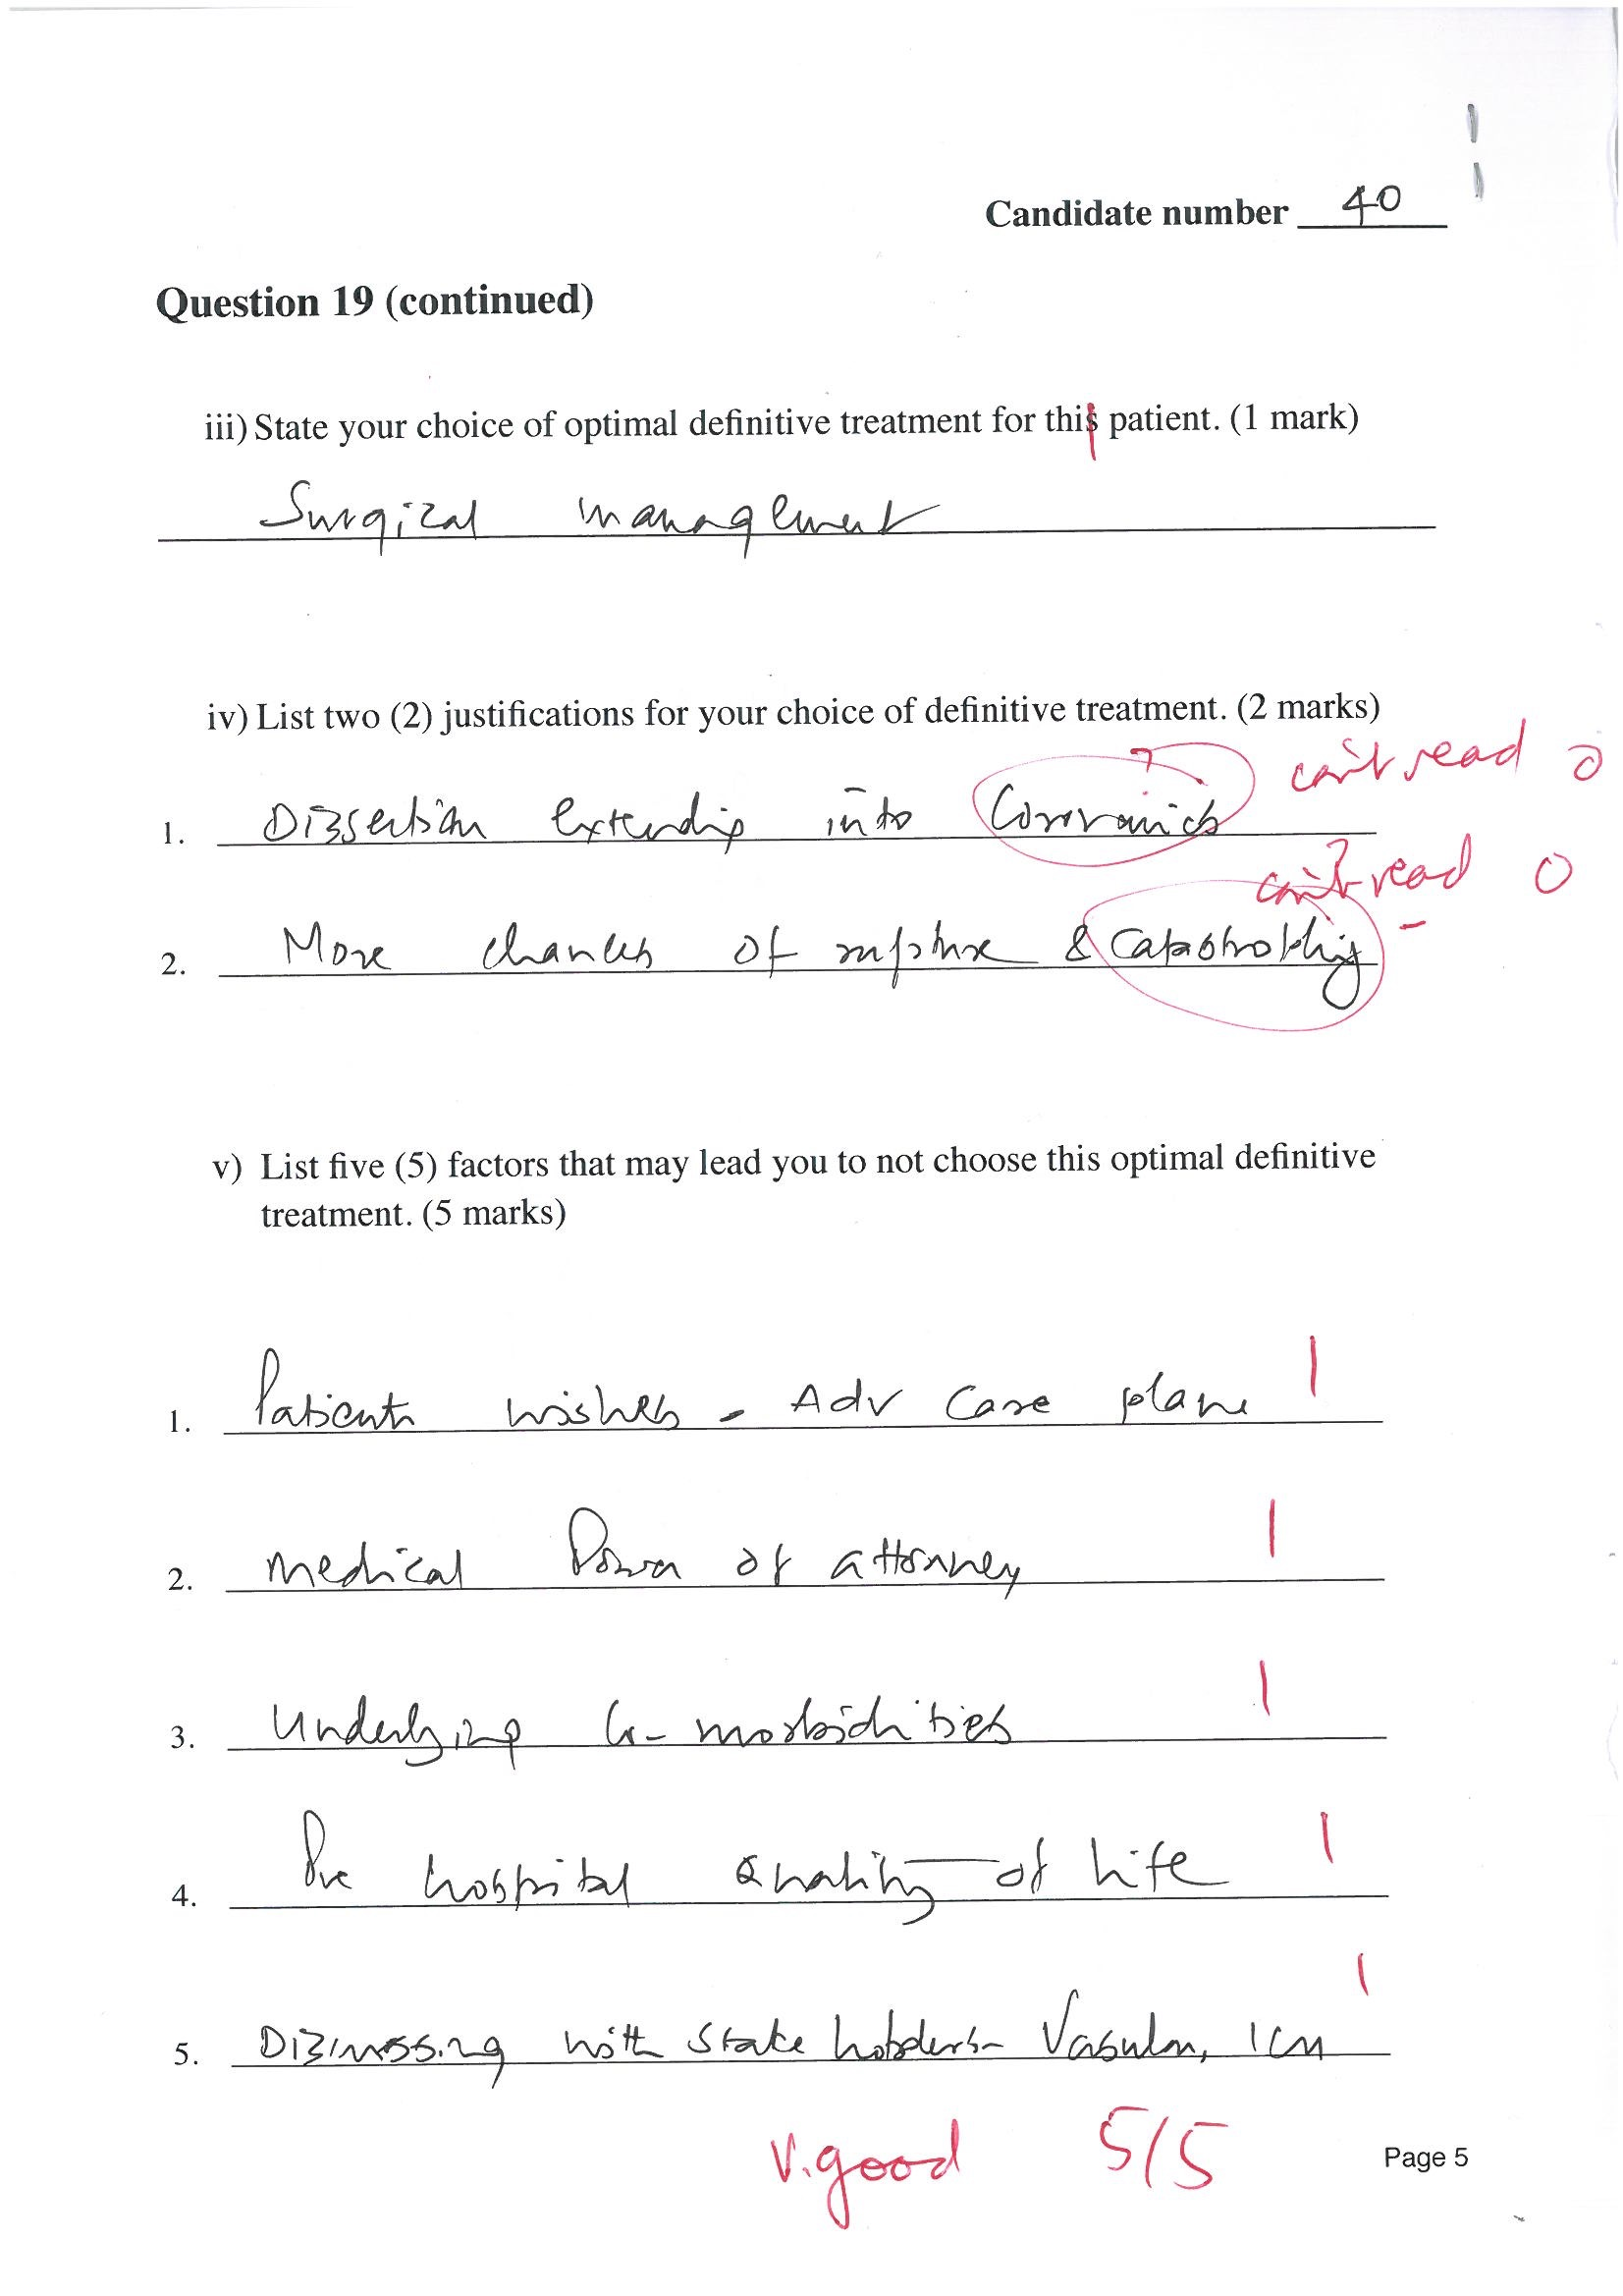 Candidate number 40
Question 19 (continued)
iii) State your choice of optimal definitive treatment for this patient. (1 mark)
Surgical management
iv) List two (2) justifications for your choice of definitive treatment. (2 marks)
can't read 0
1. Dissection extending into
? can't read 0
2. More chances of rupture &
v) List five (5) factors that may lead you to not choose this optimal definitive
treatment. (5 marks)
1. Patients wishes - Adv Care plane 1
2. Medical Power of attorney 1
3. Underlying Co-morbidities 1
4. Pre hospital Quality of life 1
5. Discussing with stake holders - Vasular, ICU 1
v.good 5/5
Page 5